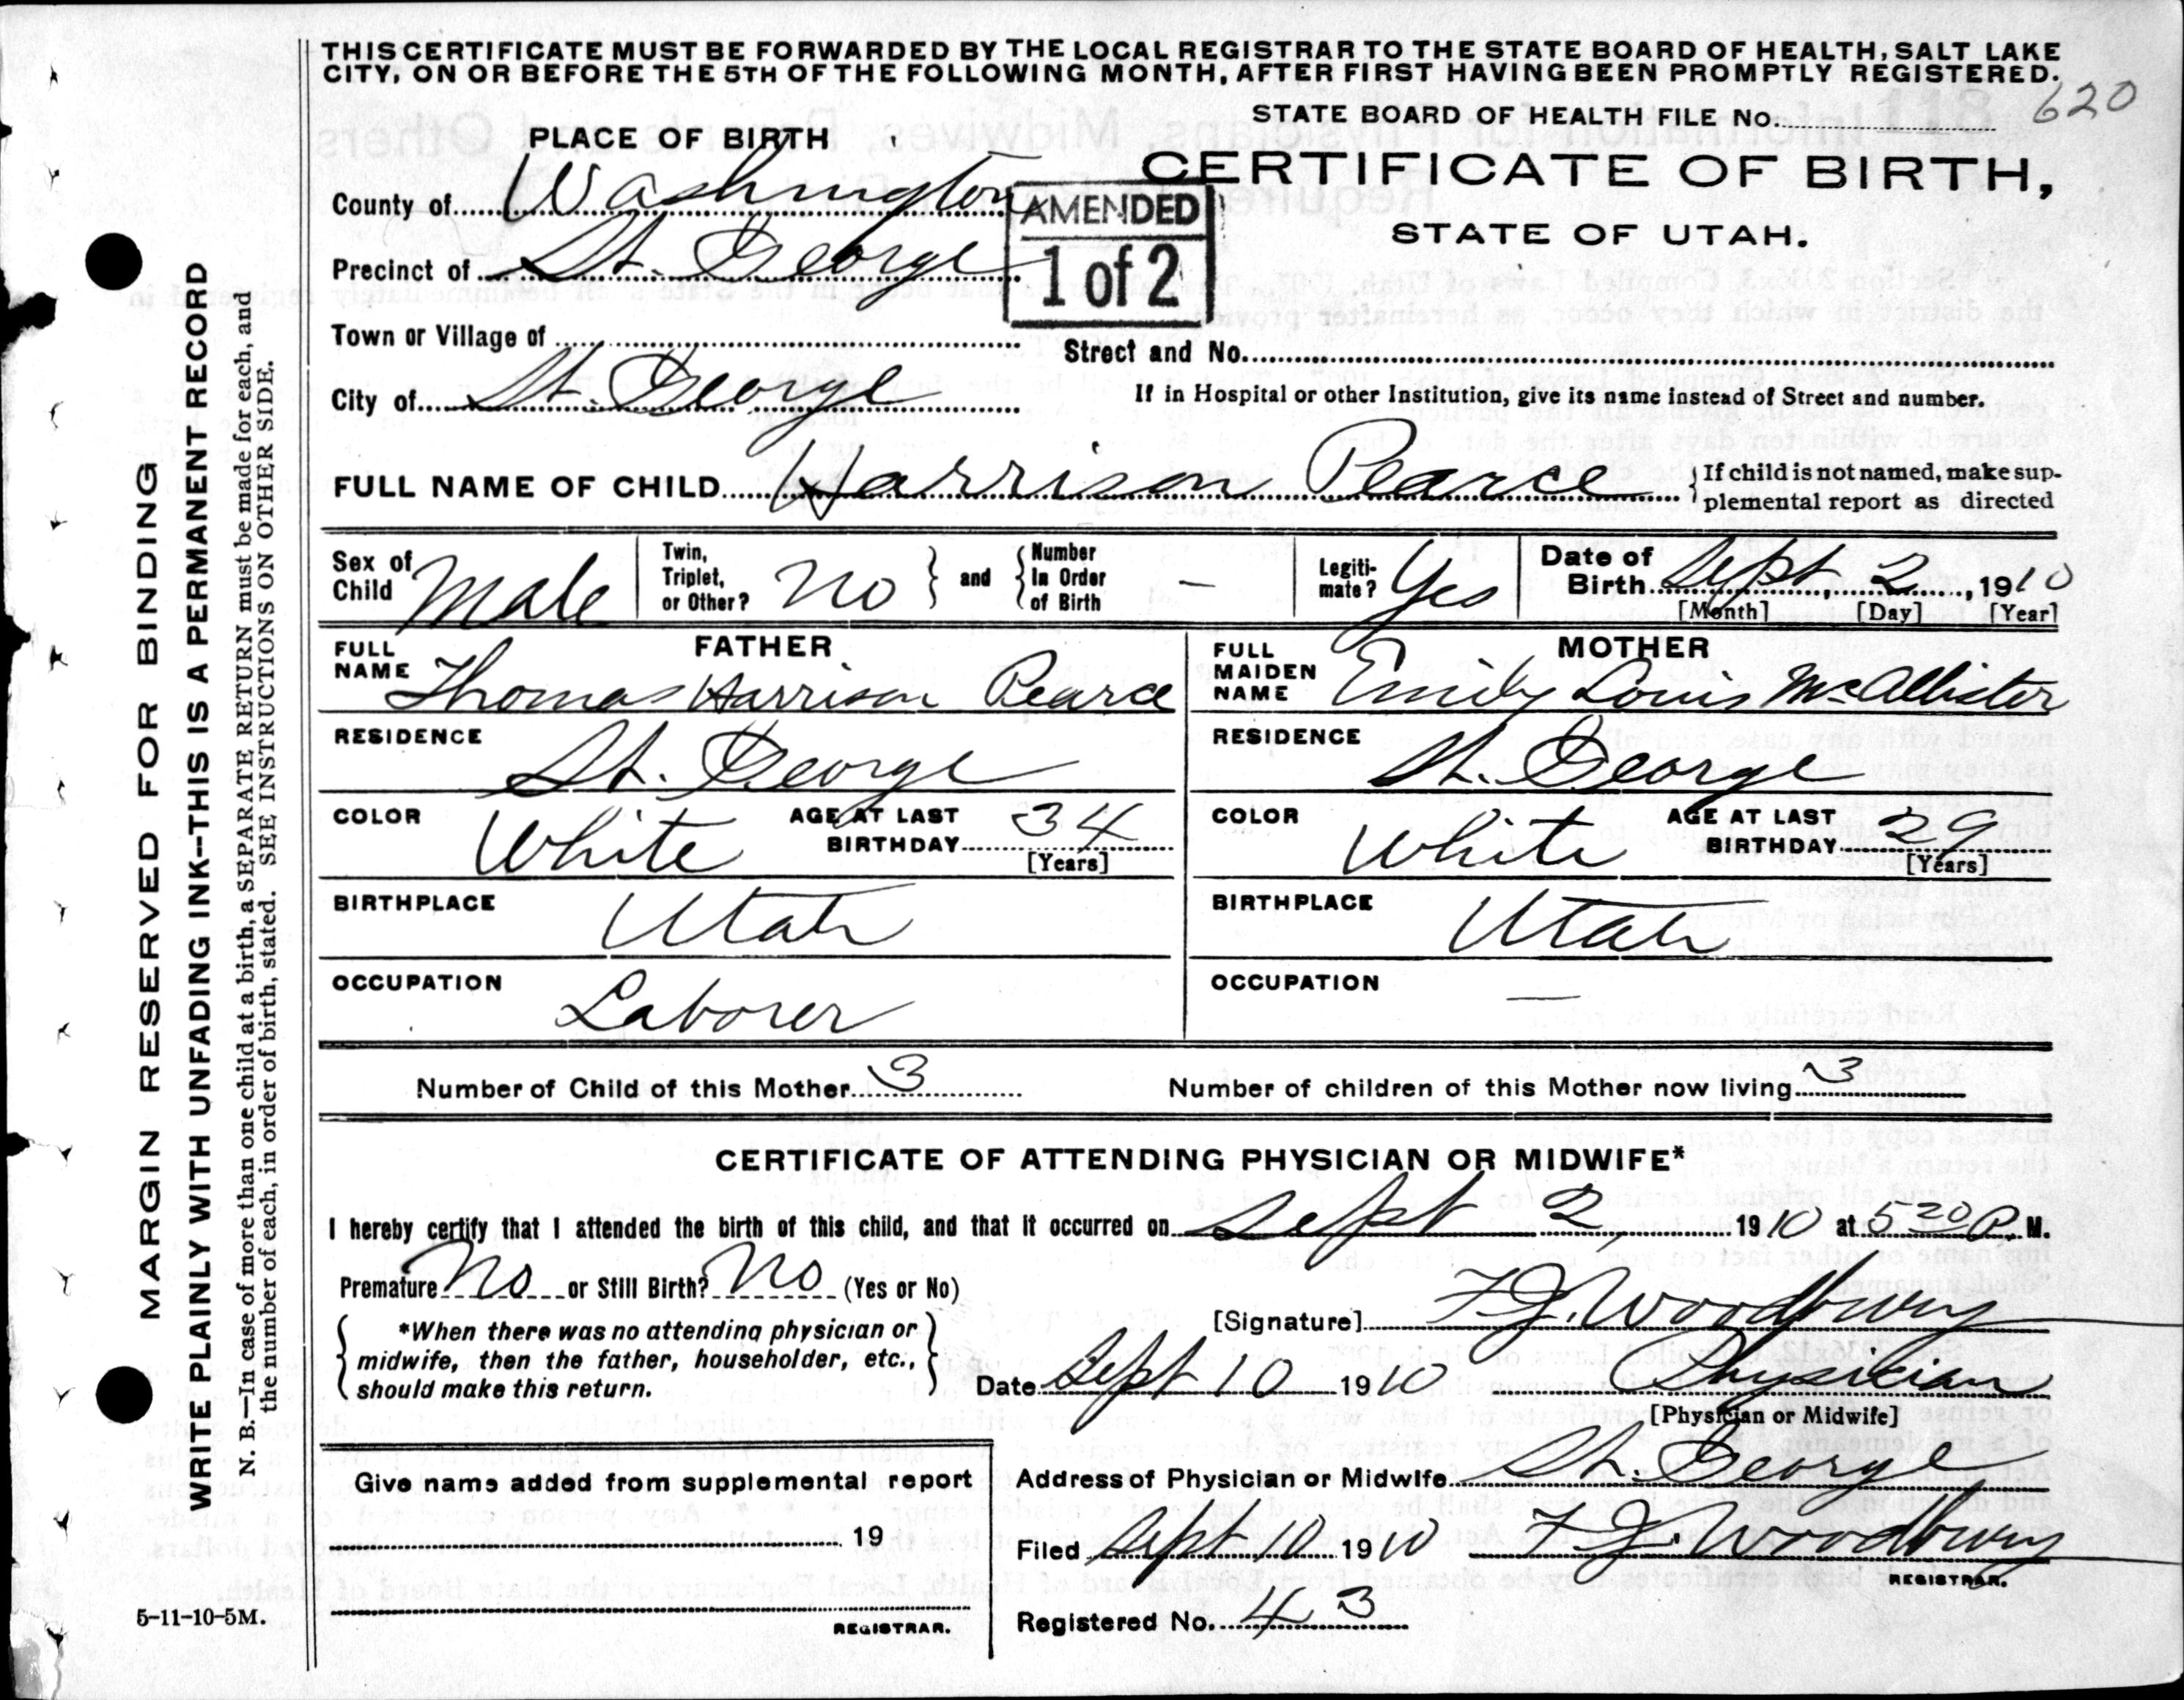 THIS CERTIFICATE MUST BE FORWARDED BY THE LOCAL REGISTRAR TO THE STATE BOARD OF HEALTH, SALT LAKE
CITY, ON OR BEFORE THE 5TH OF THE FOLLOWING MONTH, AFTER FIRST HAVING BEEN PROMPTLY REGISTERED.
STATE BOARD OF HEALTH FILE No. 620
PLACE OF BIRTH
CERTIFICATE OF BIRTH,
STATE OF UTAH.
County of Washington
AMENDED
1 of 2
Precinct of St. George
Town or Village of
Street and No.
City of St. George
If in Hospital or other Institution, give its name instead of Street and number.
FULL NAME OF CHILD Harrison Pearce
If child is not named, make sup-
plemental report as directed
Sex of Child Male
Twin, Triplet, or Other? No
and Number In Order of Birth –
Legiti-mate? Yes
Date of Birth Sept. 2, 1910
[Month] [Day] [Year]
FATHER
FULL NAME Thomas Harrison Pearce
RESIDENCE St. George
COLOR White
AGE AT LAST BIRTHDAY 34
[Years]
BIRTHPLACE Utah
OCCUPATION Laborer
MOTHER
FULL MAIDEN NAME Emily Louis McAllister
RESIDENCE St. George
COLOR White
AGE AT LAST BIRTHDAY 29
[Years]
BIRTHPLACE Utah
OCCUPATION —
Number of Child of this Mother 3
Number of children of this Mother now living 3
CERTIFICATE OF ATTENDING PHYSICIAN OR MIDWIFE*
I hereby certify that I attended the birth of this child, and that it occurred on Sept 2, 1910 at 5 20 P. M.
Premature No or Still Birth? No (Yes or No)
*When there was no attending physician or
midwife, then the father, householder, etc.,
should make this return.
[Signature] F. J. Woodbury
Date Sept 10 1910 Physician
[Physician or Midwife]
Give name added from supplemental report
19
REGISTRAR.
Address of Physician or Midwife St. George
Filed Sept 10 1910 F. J. Woodbury
REGISTRAR.
Registered No. 43
5-11-10-5M.
MARGIN RESERVED FOR BINDING
WRITE PLAINLY WITH UNFADING INK--THIS IS A PERMANENT RECORD
N. B.—In case of more than one child at a birth, a SEPARATE RETURN must be made for each, and
the number of each, in order of birth, stated. SEE INSTRUCTIONS ON OTHER SIDE.